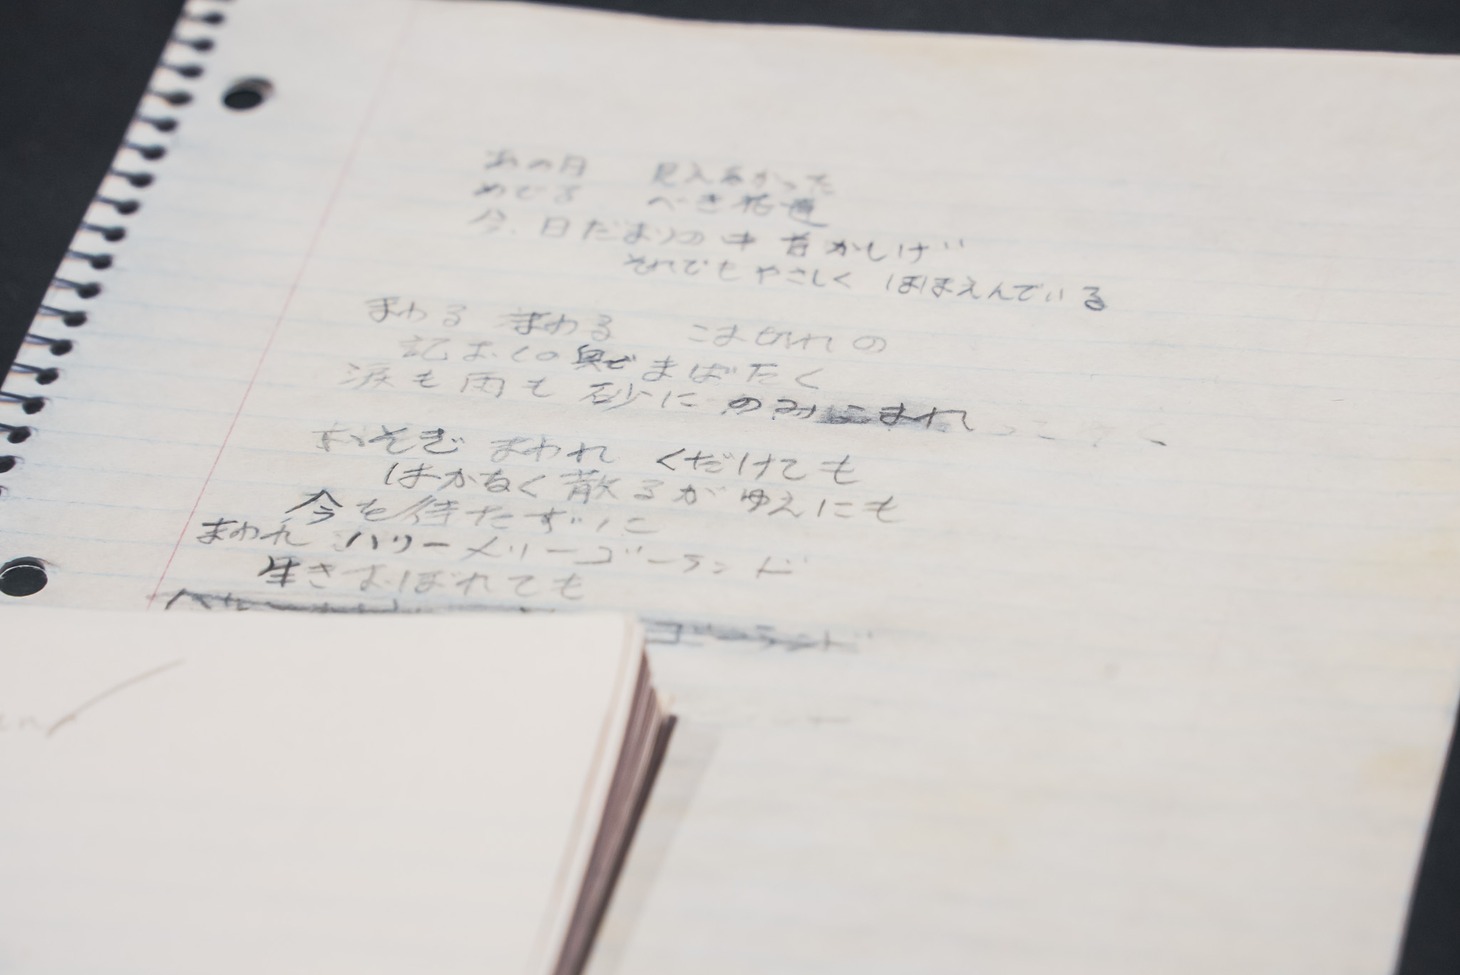 あの日 見えなかった
めでる べき花達
今、日だまりの中 昔 かしげ
それでも やさしく ほほえんでいる
まわる まわる こまぎれの
記おくの奥で まばたく
涙も 雨も 砂に のみこまれ
いそぎ まわれ くだけても
はかなく 散るが ゆえにも
今を待たずに
まわれ ハリーメリーゴーランド
生きおばれても
ゴーランド